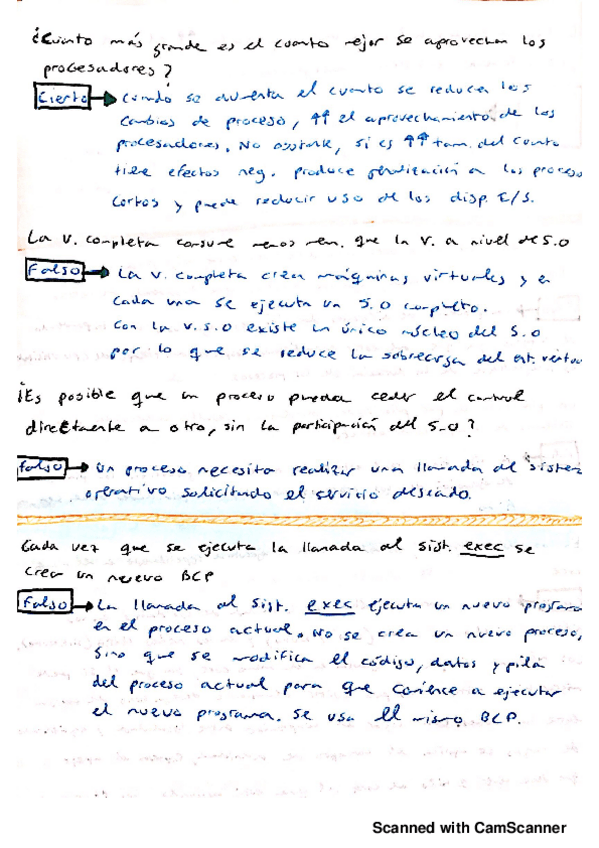 ¿Cuánto más grande es el cuanto mejor se aprovechan los
procesadores?
Cierto → Cuando se aumenta el cuanto se reducen los
cambios de proceso, ↑↑ el aprovechamiento de los
procesadores. No obstante, si es ↑↑ tam. del cuanto
tiene efectos neg. produce penalización a los proceso
cortos y puede reducir uso de los disp. E/S.
La V. completa consume menos mem. que la V. a nivel de S.O
Falso → La V. completa crea máquinas virtuales y en
cada una se ejecuta un S.O completo.
Con la V. S.O existe un único núcleo del S.O
por lo que se reduce la sobrecarga del ent. virtua
¿Es posible que un proceso pueda ceder el control
directamente a otro, sin la participación del S.O?
Falso → Un proceso necesita realizar una llamada al sistem
operativo solicitando el servicio deseado.
Cada vez que se ejecuta la llamada al sist. exec se
crea un nuevo BCP
Falso → La llamada al sist. exec ejecuta un nuevo programa
en el proceso actual. No se crea un nuevo proceso,
sino que se modifica el código, datos y pila
del proceso actual para que comience a ejecutar
el nuevo programa. Se usa el mismo BCP.
Scanned with CamScanner